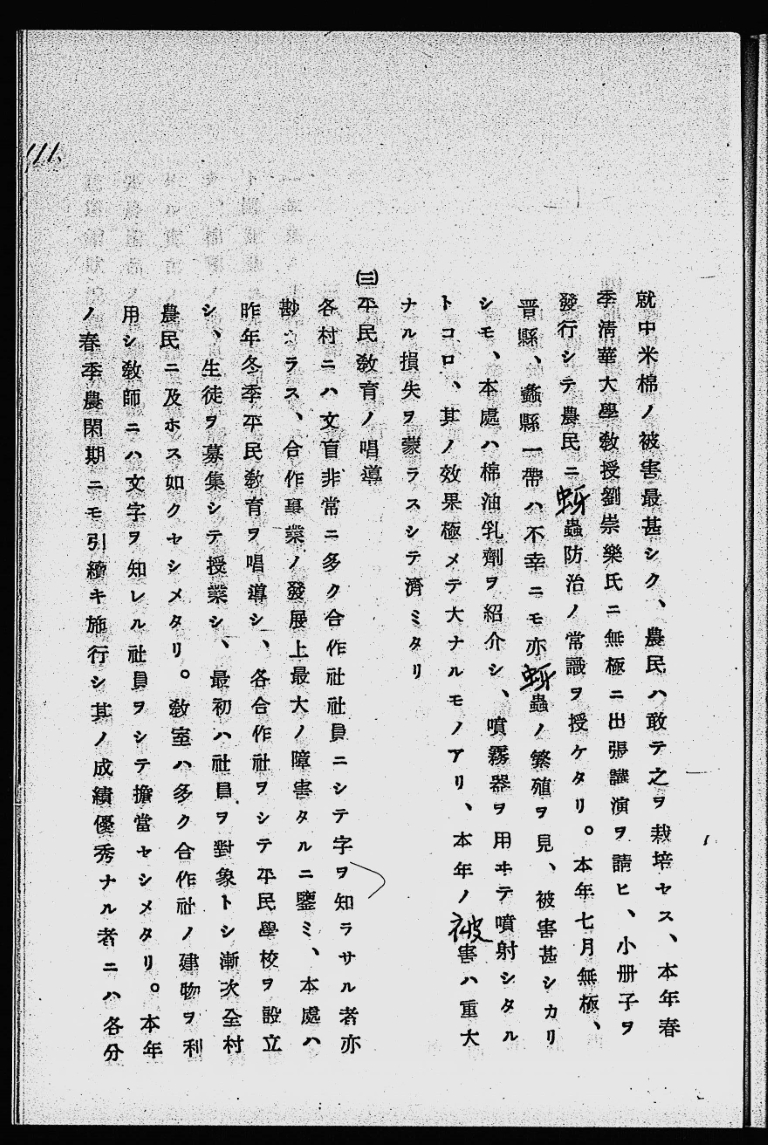 就中米棉ノ被害最甚シク、農民ハ敢テ之ヲ栽培セス、本年春
季清華大學敎授劉崇樂氏ニ無極ニ出張講演ヲ請ヒ、小册子ヲ
發行シテ農民ニ蚜蟲防治ノ常識ヲ授ケタリ。本年七月無極、
晋縣、蠡縣一帶ハ不幸ニモ亦蚜蟲ノ繁殖ヲ見、被害甚シカリ
シモ、本處ハ棉油乳劑ヲ紹介シ、噴霧器ヲ用ヰテ噴射シタル
トコロ、其ノ效果極メテ大ナルモノアリ、本年ノ被害ハ重大
ナル損失ヲ蒙ラスシテ濟ミタリ
㈢平民敎育ノ唱導
各村ニハ文盲非常ニ多ク合作社社員ニシテ字ヲ知ラサル者亦
尠カラス、合作事業ノ發展上最大ノ障害タルニ鑒ミ、本處ハ
昨年冬季平民敎育ヲ唱導シ、各合作社ヲシテ平民學校ヲ設立
シ、生徒ヲ募集シテ授業シ、最初ハ社員ヲ對象トシ漸次全村
農民ニ及ホス如クセシメタリ。敎室ハ多ク合作社ノ建物ヲ利
用シ敎師ニハ文字ヲ知レル社員ヲシテ擔當セシメタリ。本年
ノ春季農閑期ニモ引續キ施行シ其ノ成績優秀ナル者ニハ各分